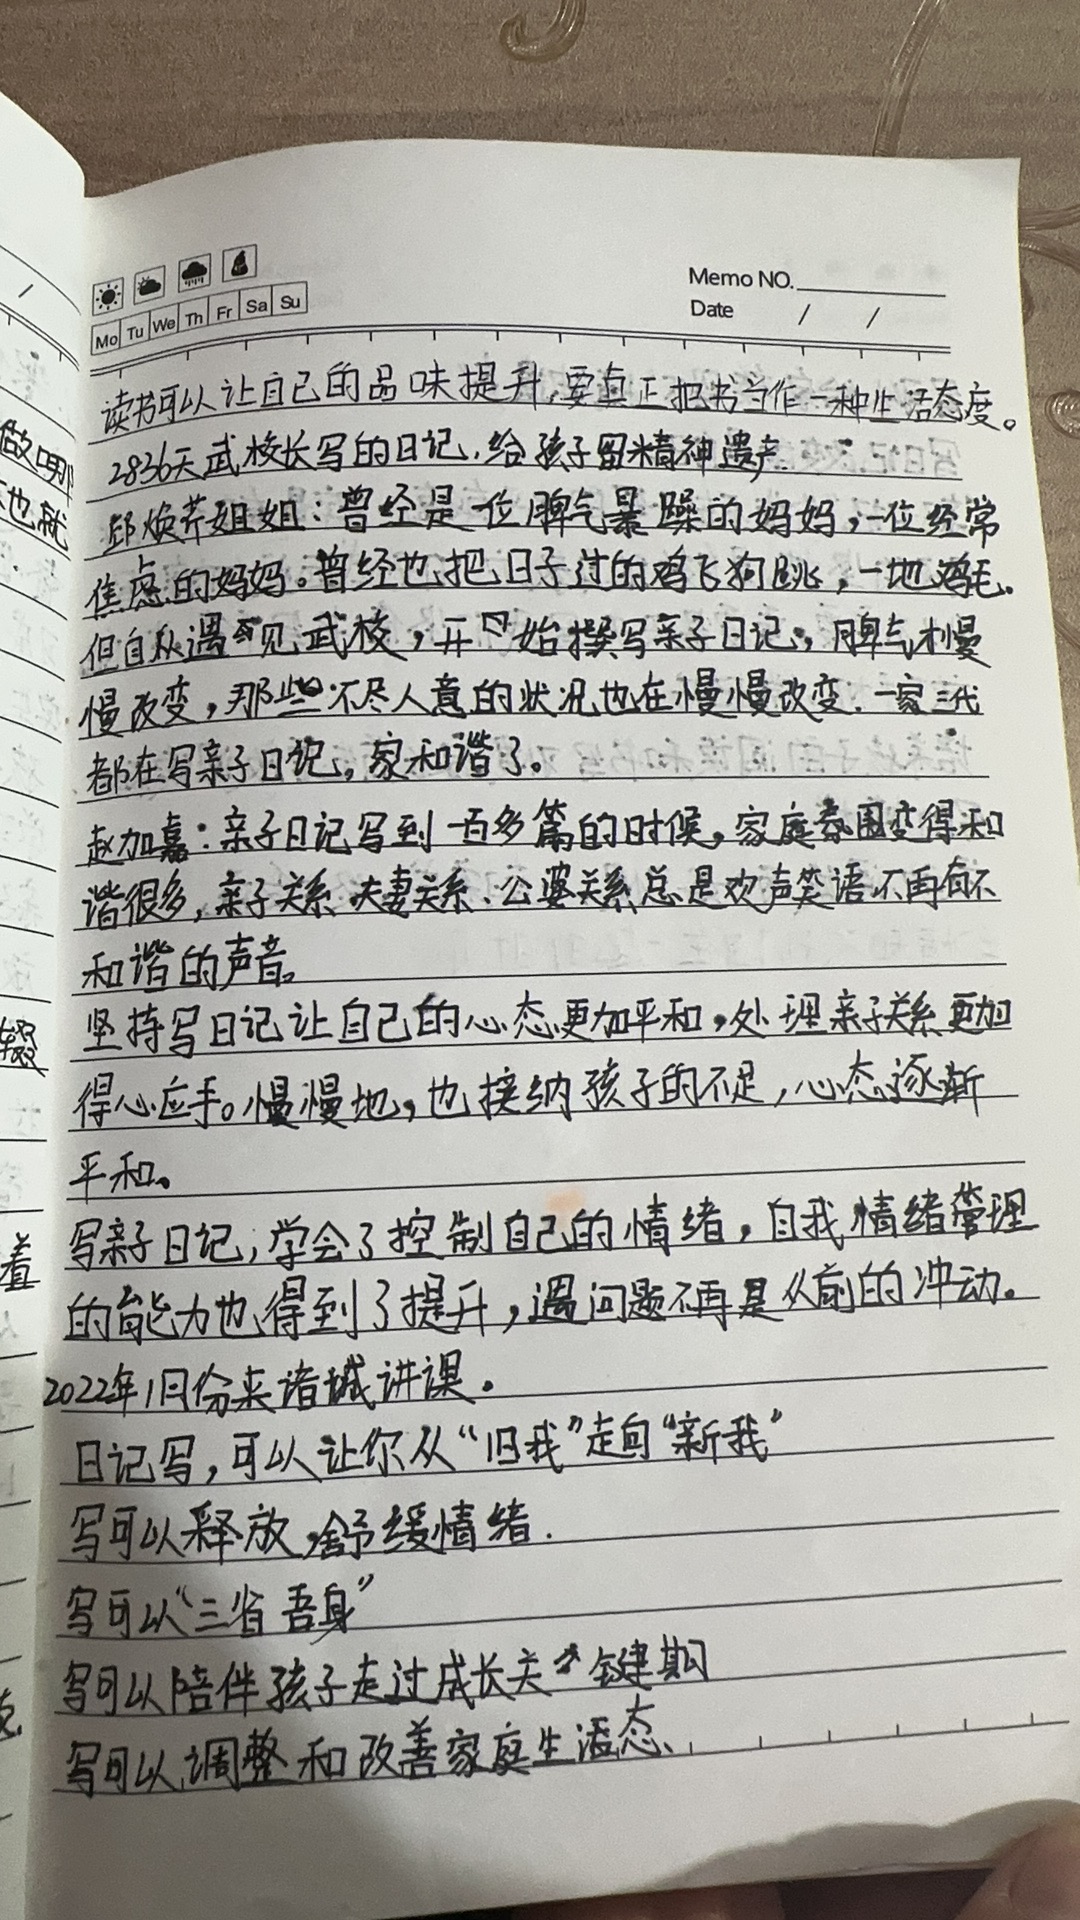 Memo NO.
Date / /
Mo Tu We Th Fr Sa Su
读书可以让自己的品味提升,要真正把书当作一种生活态度。
2836天武校长写的日记,给孩子留精神遗产.
邱焕芹姐姐:曾经是一位脾气暴躁的妈妈,一位经常
焦虑的妈妈。曾经也把日子过的鸡飞狗跳,一地鸡毛.
但自从遇见武校,开始撰写亲子日记,脾气才慢
慢改变,那些不尽人意的状况也在慢慢改变.一家三代
都在写亲子日记,家和谐了。
赵加嘉:亲子日记写到一百多篇的时候,家庭氛围变得和
谐很多,亲子关系、夫妻关系、公婆关系总是欢声笑语不再有不
和谐的声音。
坚持写日记让自己的心态更加平和,处理亲子关系更加
得心应手。慢慢地,也接纳孩子的不足,心态逐渐
平和。
写亲子日记,学会了控制自己的情绪,自我情绪管理
的能力也得到了提升,遇问题不再是从前的冲动。
2022年1月份来诸城讲课.
日记写,可以让你从“旧我”走向“新我”
写可以释放,舒缓情绪.
写可以“三省吾身”
写可以陪伴孩子走过成长关键期
写可以调整和改善家庭生活态、
做
也就
辍
着